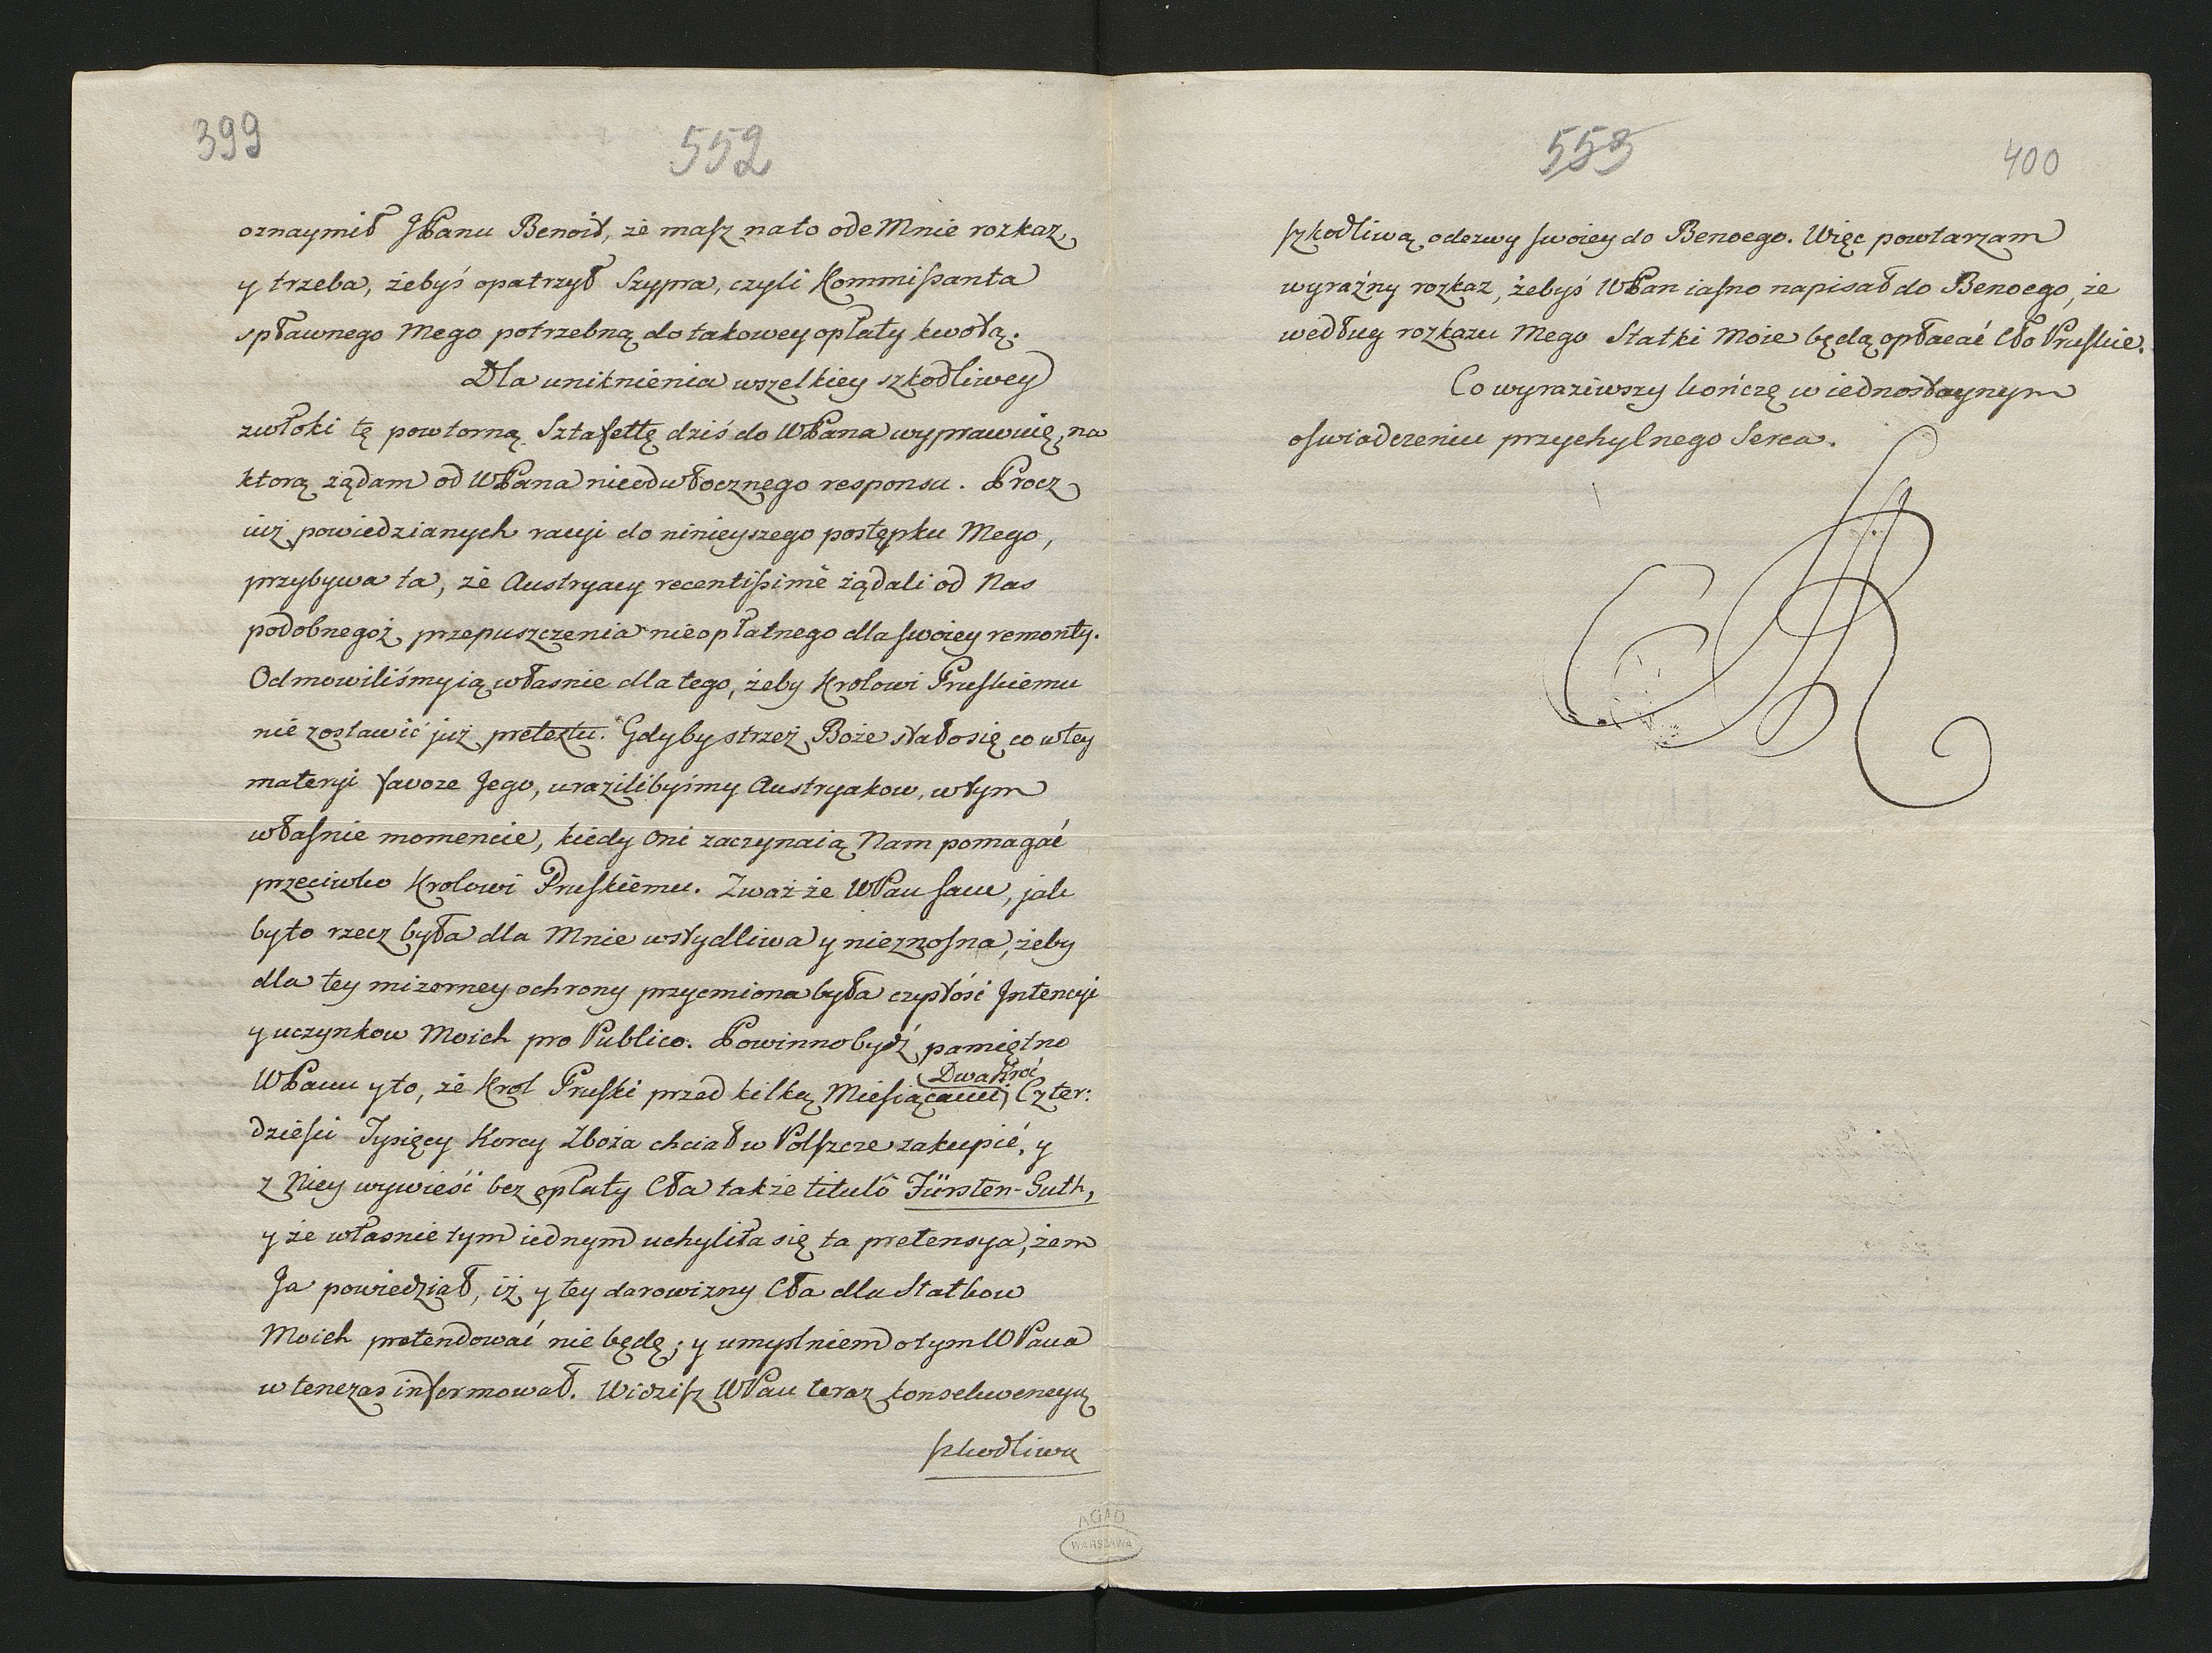 399
552
oznaymił JPanu Benoit, że masz na to odeMnie rozkaz,
y trzeba, żebyś opatrzył Szypra, czyli Kommissanta
spławnego Mego potrzebną do takowey opłaty kwotą.
Dla uniknienia wszelkiey szkodliwey
zwłoki tę powtorną Sztafettę dziś do WPana wyprawuię, na
ktorą żądam od WPana nieodwłocznego responsu. Procz
iuż powiedzianych racyi do ninieyszego postępku Mego,
przybywa ta, że Austryacy recentissime żądali od Nas
podobnegoż przepuszczenia nieopłatnego dla swoiey remonty.
Odmowiliśmy ią własnie dla tego, żeby Krolowi Pruskiemu
nie zostawić już pretextu. Gdyby strzeż Boże stało się co w tey
materyi favore Jego, urazilibyśmy Austryakow, w tym
własnie momencie, kiedy Oni zaczynaią Nam pomagać
przeciwko Krolowi Pruskiemu. Zważ że WPan sam, jak
by to rzecz była dla Mnie wstydliwa y nieznosna, żeby
dla tey mizerney ochrony przycmiona była czystość Jntencyi
y uczynkow Moich pro Publico. Powinno bydź pamiętno
WPanu y to, że Krol Pruski przed kilką Miesiącami Dwakroć Czter:
dzieści Tysięcy Korcy Zboża chciał w Polszcze zakupić, y
z Niey wywieść bez opłaty Cła także titulô Fürsten-Guth,
y że własnie tym iednym uchyliła się ta pretensya, żem
Ja powiedział, iż y tey darowizny Cła dla Statkow
Moich pretendować nie będę; y umyslniem o tym WPana
w tenczas informował. Widzisz WPan teraz konsekwencyą
szkodliwą
AGAD
WARSZAWA
553
400
szkodliwą odezwy swoiey do Benoego. Więc powtarzam
wyraźny rozkaz, żebyś WPan iasno napisał do Benoego, że
według rozkazu Mego Statki Moie będą opłacać Cło Pruskie.
Co wyraziwszy kończę w iednostaynym
oswiadczeniu przychylnego Serca.